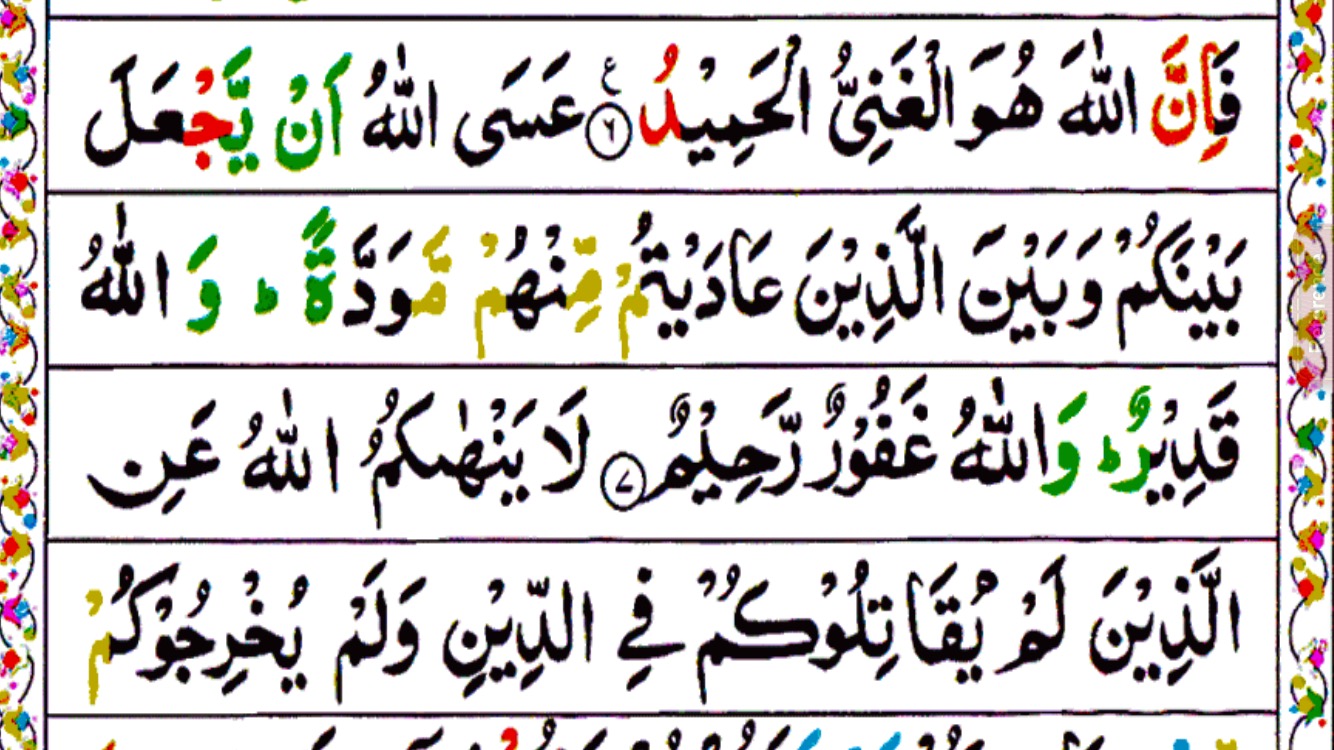 فَاِنَّ اللّٰهَ هُوَ الْغَنِيُّ الْحَمِيْدُ ۶ ع عَسَى اللّٰهُ اَنْ يَّجْعَلَ
بَيْنَكُمْ وَبَيْنَ الَّذِيْنَ عَادَيْتُمْ مِّنْهُمْ مَّوَدَّةً ؕ وَ اللّٰهُ
قَدِيْرٌ ؕ وَاللّٰهُ غَفُوْرٌ رَّحِيْمٌ ۷ لَا يَنْهٰىكُمُ اللّٰهُ عَنِ
الَّذِيْنَ لَمْ يُقَاتِلُوْكُمْ فِي الدِّيْنِ وَلَمْ يُخْرِجُوْكُمْ